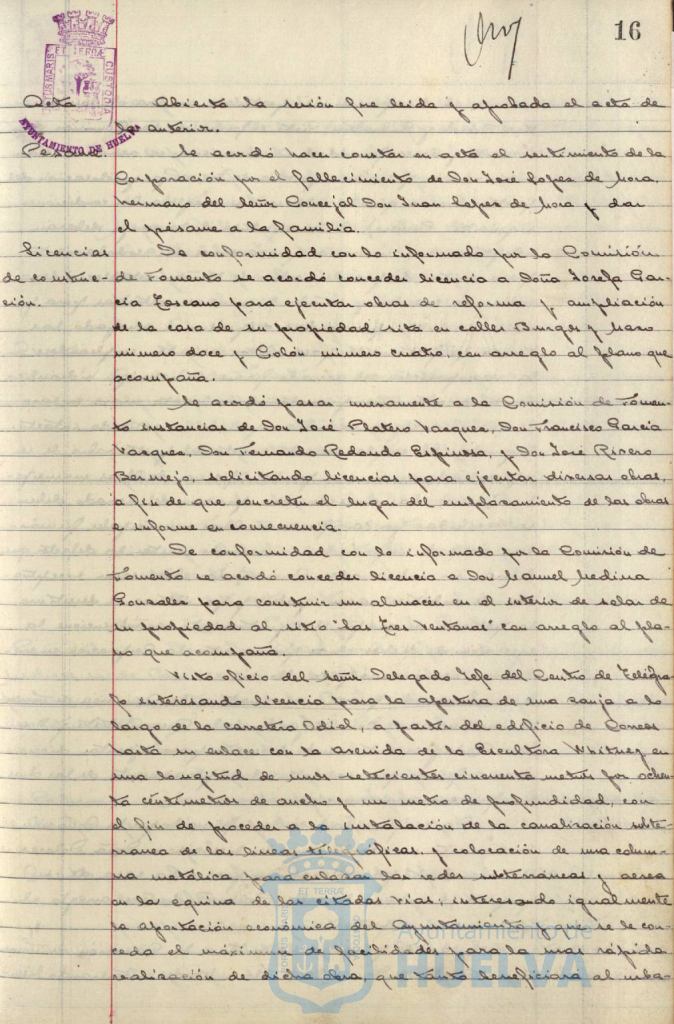 16
Acta Abierta la sesión fue leida y aprobada el acta de
la anterior.
Pesame. Se acordó hacer constar en acta el sentimiento de la
Corporación por el fallecimiento de Don José Lopez de Mora,
hermano del Señor Concejal Don Juan Lopez de Mora y dar
el pésame a la familia.
Licencias De conformidad con lo informado por la Comisión
de construc- de Fomento se acordó conceder licencia a Doña Josefa Gar-
ción. cia Toscano para ejecutar obras de reforma y ampliación
de la casa de su propiedad sita en calles Burgos y Mazo
número doce y Colón número cuatro, con arreglo al plano que
acompaña.
Se acordó pasar nuevamente a la Comisión de Fomen-
to instancias de Don José Platero Vazquez, Don Francisco Garcia
Vazquez, Don Fernando Redondo Espinosa, y Don José Rivero
Bermejo, solicitando licencias para ejecutar diversas obras,
a fin de que concreten el lugar del emplazamiento de las obras
e informe en consecuencia.
De conformidad con lo informado por la Comisión de
Fomento se acordó conceder licencia a Don Manuel Medina
Gonzalez para construir un almacen en el interior de solar de
su propiedad al sitio "Las Tres Ventanas" con arreglo al pla-
no que acompaña.
Visto oficio del Señor Delegado Jefe del Centro de Telégra-
fo interesando licencia para la apertura de una zanja a lo
largo de la carretera Odiel, a partir del edificio de Correos
hasta su enlace con la avenida de la Escultora Whitney en
una longitud de unos setecientos cincuenta metros por ochen-
ta céntimetros de ancho y un metro de profundidad, con
el fin de proceder a la instalación de la canalización subte-
rranea de las lineas telegráficas, y colocación de una colum-
na metálica para enlazar las redes subterráneas y aerea
en la equina de las citadas vias; interesando igualmente
la aportación económica del Ayuntamiento y que se le con-
ceda el máximum de facilidades para la mas rápida
realización de dicha obra, que tanto beneficiará al veba-
ET TERRÆ
CUSTODIA
AYUNTAMIENTO DE HUELVA
Ayuntamiento de
HUELVA